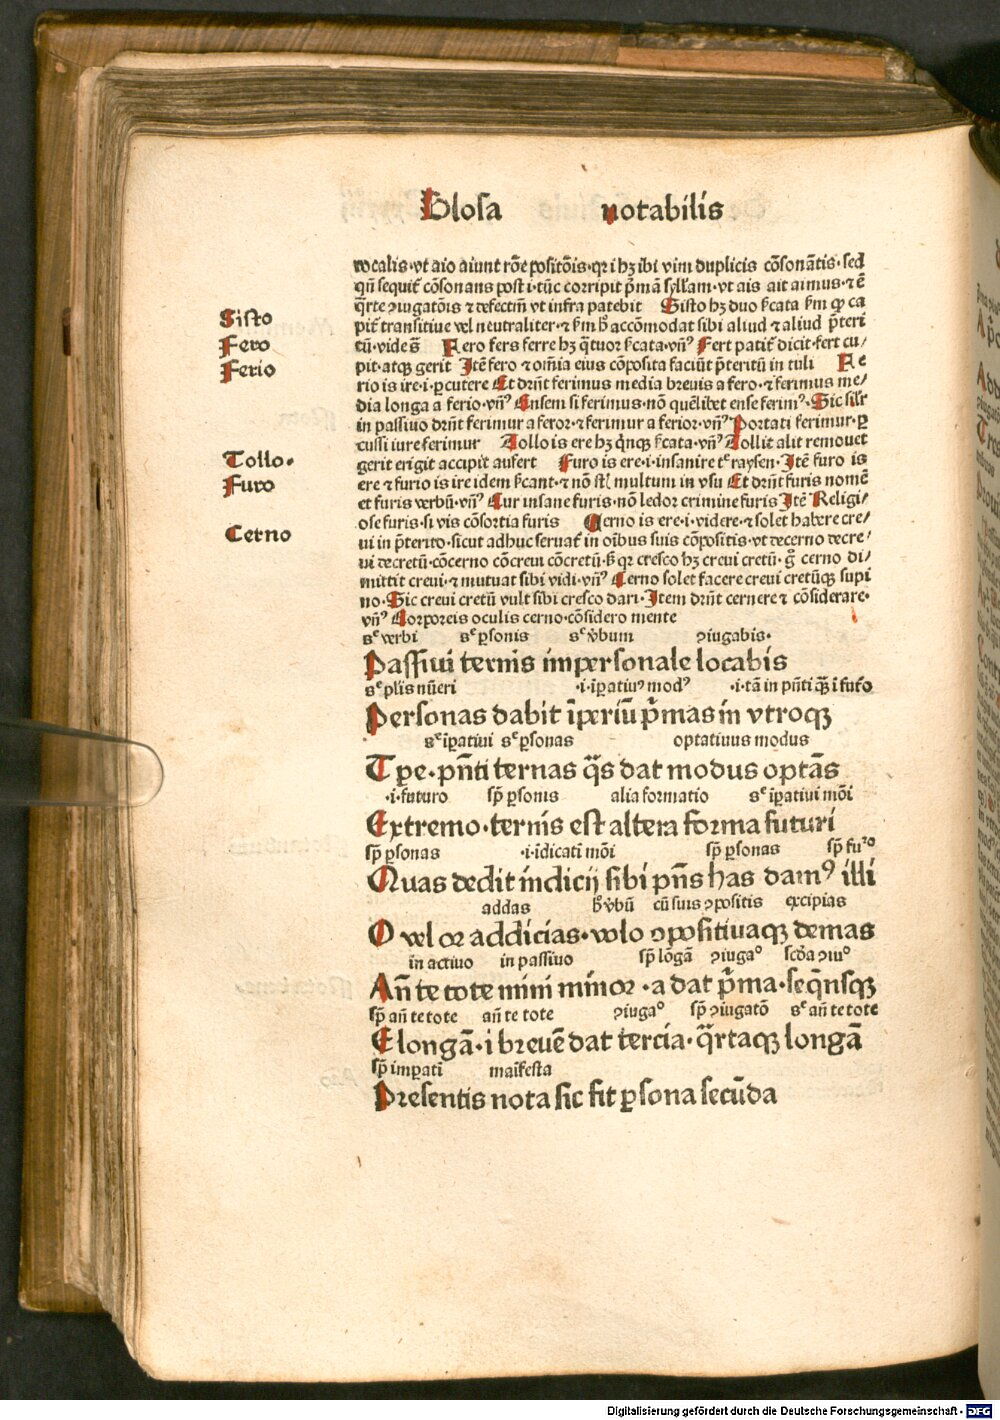 Glosa notabilis
vocalis·vt aio aiunt rōe positōis·qr i hȝ ibi vim duplicis cōsonātis·sed
qñ sequit᷑ cōsonans post i·tūc corripit p̄mā syllam·vt ais ait aimus·⁊ ē
q̄rte ꝯiugatōis ⁊ defectiū vt infra patebit Sisto hȝ duo s̄cata s̄m qꝫ ca
pit᷑ transitiue vel neutraliter·⁊ s̄m h̄ accōmodat sibi aliud ⁊ aliud p̄teri
tū·vide s̄ Fero fers ferre hȝ q̄tuor s̄cata·vñꝰ Fert patit᷑ dicit·fert cu/
pit·atqꝫ gerit Itē fero ⁊ om̄ia eius cōposita faciūt p̄teritū in tuli Fe
rio is ire·i·ꝑcutere Et dr̄nt ferimus media breuis a fero·⁊ ferimus me/
dia longa a ferio·vñꝰ Ensem si ferimus·nō quēlibet ense ferimꝰ·Sic silr
in passiuo dr̄nt ferimur a feror·⁊ ferimur a ferior·vñꝰ Portati ferimur·ꝑ
cussi iure ferimur Tollo is ere hȝ q̄nqꝫ s̄cata·vñꝰ Tollit alit remouet
gerit erigit accipit aufert Furo is ere·i·insanire tᵉ raysen·Itē furo is
ere ⁊ furio is ire idem s̄cant·⁊ nō sꝉ multum in vsu Et dr̄nt furis nomē
et furis verbū·vñꝰ Cur insane furis·nō ledor crimine furis Itē Religi/
ose furis·si vis cōsortia furis Cerno is ere·i·videre·⁊ solet habere cre/
ui in p̄terito·sicut adhuc seruat᷑ in oībus suis cōpositis·vt decerno decre/
ui decretū·cōcerno cōcreui cōcretū·s̄ qr cresco hȝ creui cretū·g̊ cerno di/
mittit creui·⁊ mutuat sibi vidi·vñꝰ Cerno solet facere creui cretūqꝫ supi
no·Sic creui cretū vult sibi cresco dari·Item dr̄nt cernere ⁊ cōsiderare·
vñꝰ Corporeis oculis cerno·cōsidero mente
Sisto
Fero
Ferio
Tollo·
Furo
Cerno
sᵉ verbi sᵉ ꝑsonis sᵉ v̄bum ꝯiugabis·
Passiui ternis impersonale locabis
sᵉ plis nūeri ·i·īpatiuꝰ modꝰ ·i·tā in pn̄ti qꝫ i futo
Personas dabit īperiū p̄mas in vtroqꝫ
sᵉ īpatiui sᵉ ꝑsonas optatiuus modus
Tꝑe·pn̄ti ternas q̄s dat modus optās
·i·futuro sp̄ ꝑsonis alia formatio sᵉ īpatiui mōi
Extremo·ternis est altera forma futuri
sp̄ ꝑsonas ·i·īdicati mōi sp̄ ꝑsonas sp̄ fuʳᵒ
Quas dedit indicij sibi pn̄s has damꝰ illi
addas h̄ v̄bū cū suis ꝯpositis excipias
O vel or addicias·volo ꝯpositiuaqꝫ demas
in actiuo in passiuo sp̄ lōgā ꝯiugaᵒ scd̄a ꝯiuᵒ
Añ te tote mini minor·a dat p̄ma·seqn̄sqꝫ
sp̄ añ te tote añ te tote ꝯiugaᵒ sp̄ ꝯiugatō sᵉ añ te tote
E longā·i breuē dat tercia·q̄rtaqꝫ longā
sp̄ imꝑati manifesta
Presentis nota sic fit ꝑsona secūda
Digitalisierung gefördert durch die Deutsche Forschungsgemeinschaft - DFG